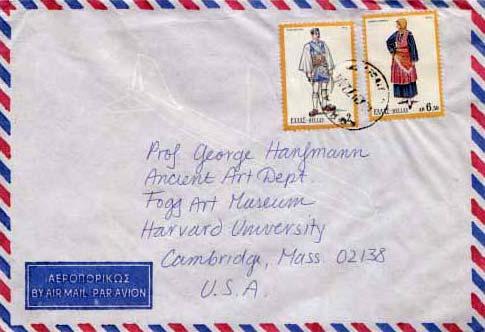 ΕΛΛΑΣ-HELLAS
ΕΛΛΑΣ-HELLAS
ΔΡ 6.50
Prof George Hanfmann
Ancient Art Dept.
Fogg Art Museum
Harvard University
Cambridge, Mass. 02138
U.S.A.
ΑΕΡΟΠΟΡΙΚΩΣ
BY AIR MAIL PAR AVION